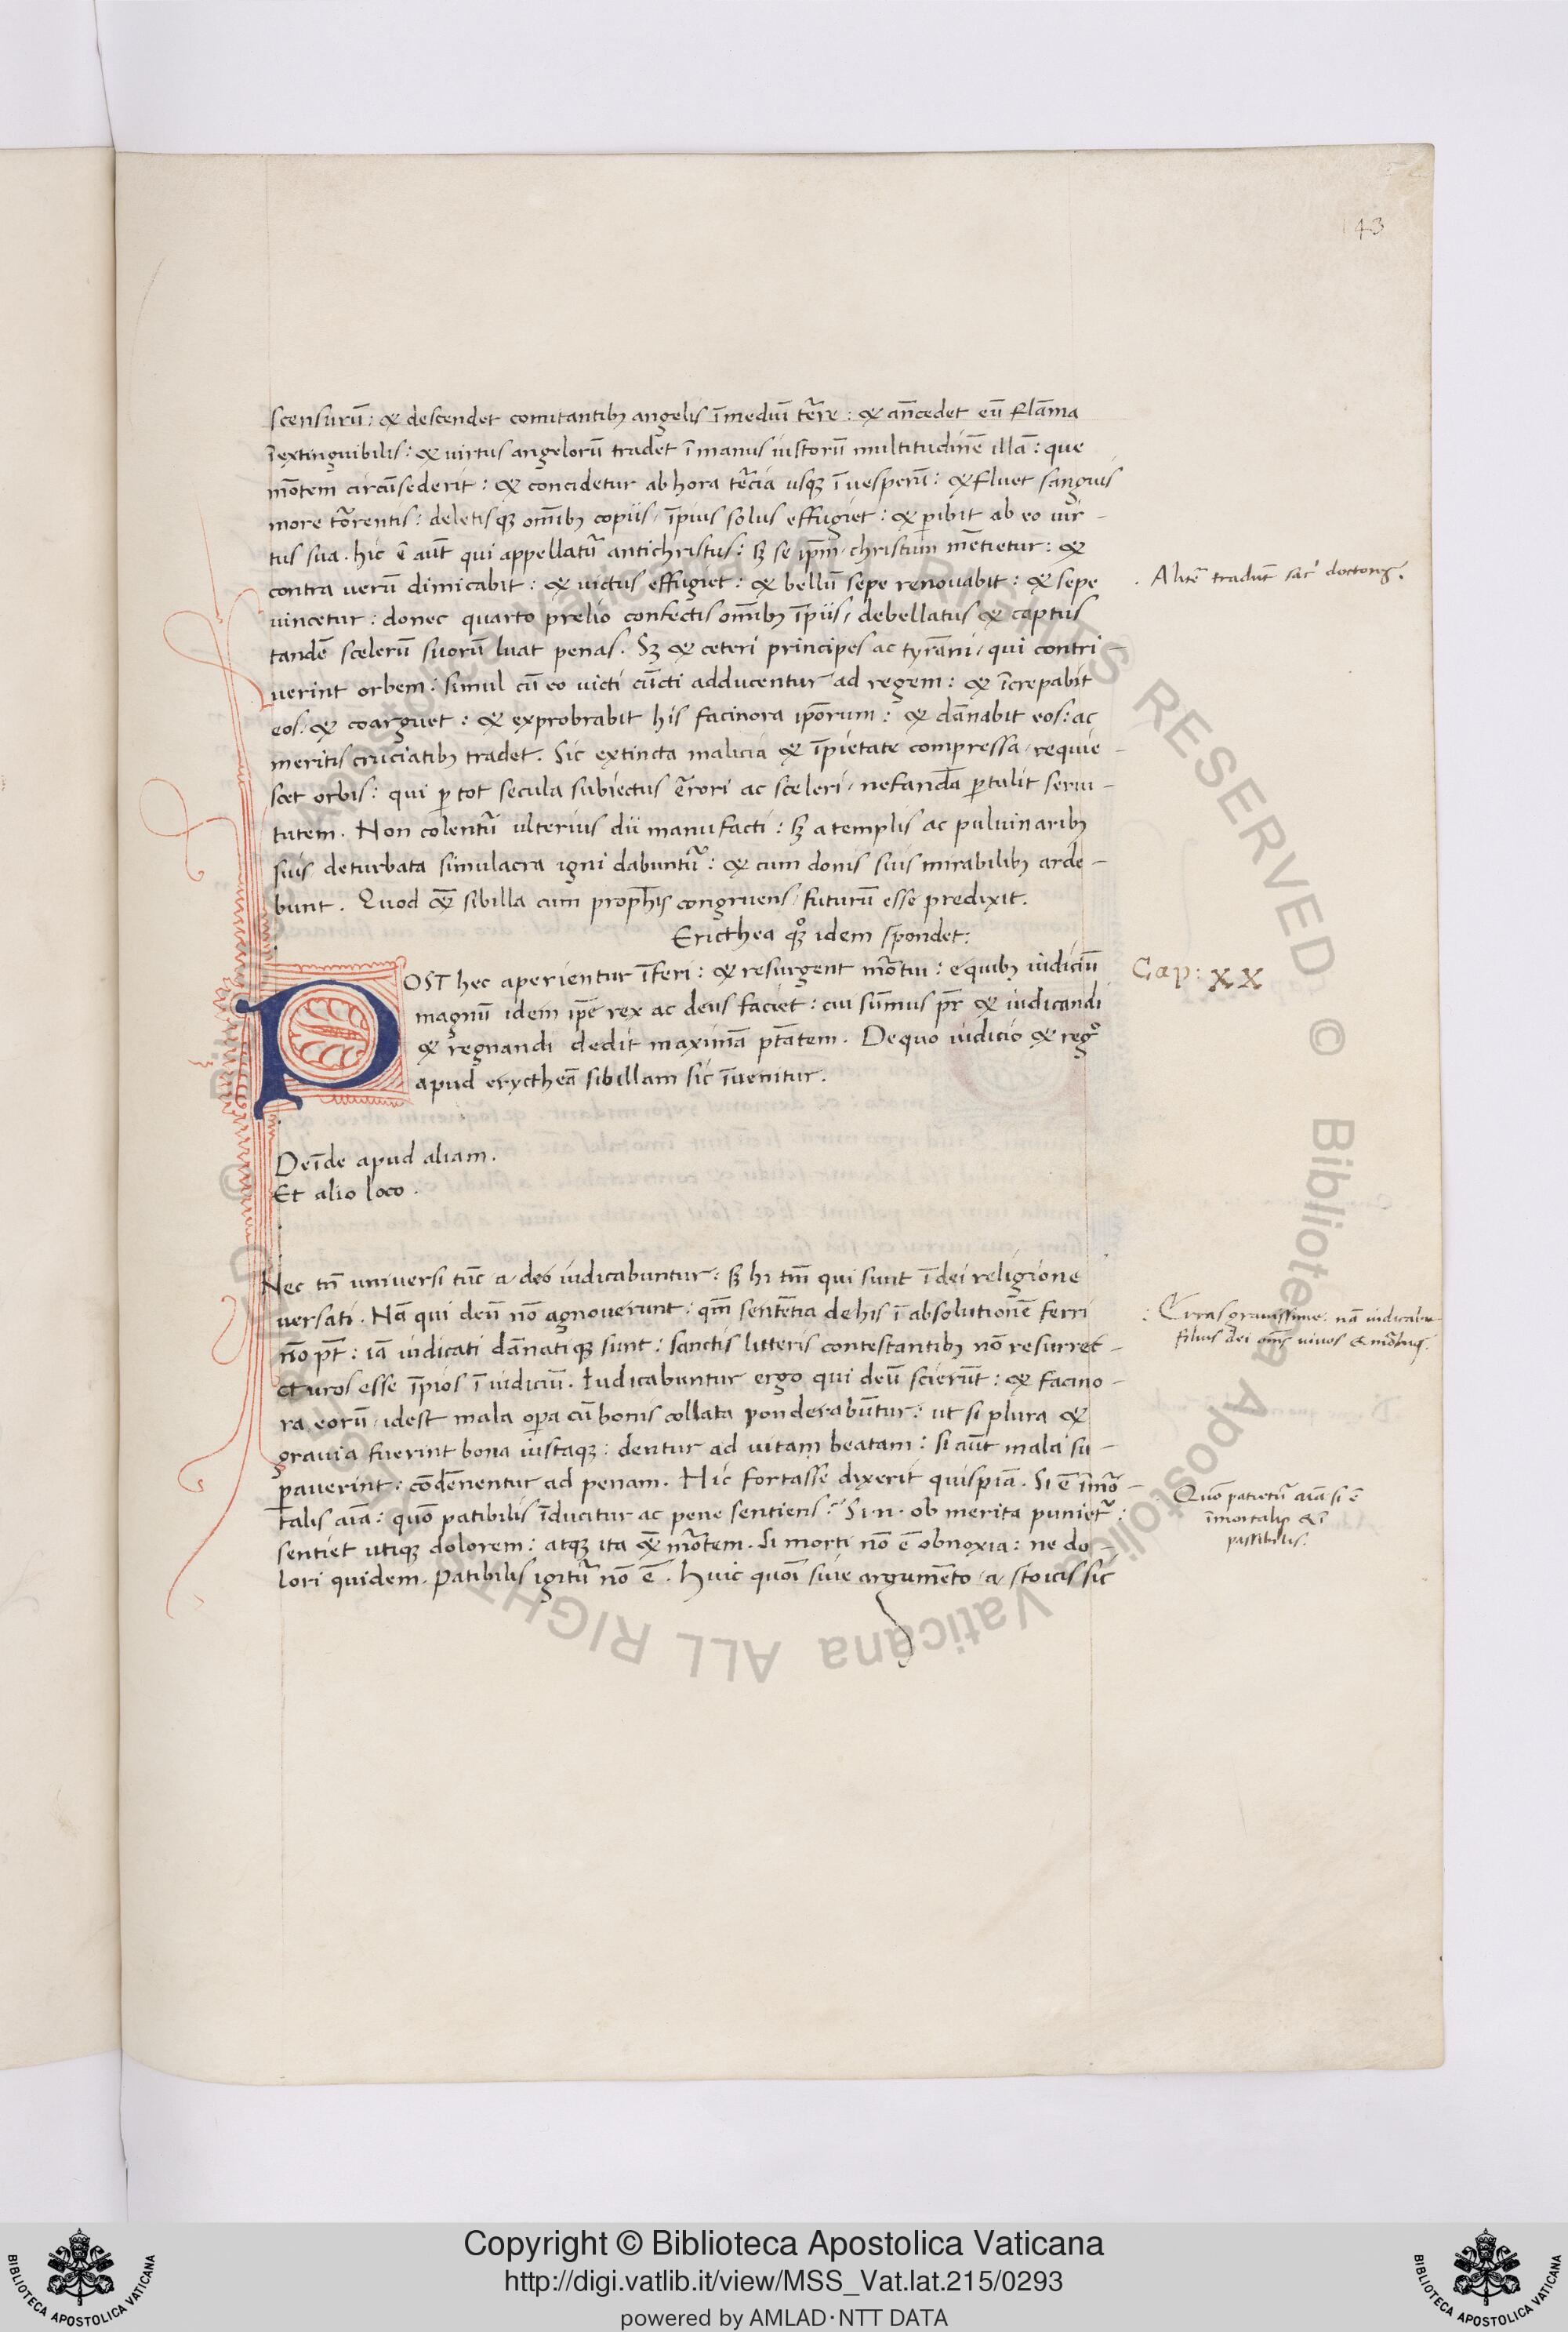 143
scensurū: & descendet comitantibꝫ angelis ī mediū t̄re: & an̄cedet eū flāma
īextinguibilis: & uirtus angelorū tradet ī manus iustorū multitudinē illā: que
mōtem circūsederit: & concidetur ab hora t̄cia usqꝫ ī uesperū: & fluet sanguis
more t̄orrentis: deletisqꝫ om̄ibꝫ copiis / īpius solus effugiet: & ꝑibit ab eo uir-
tus sua. hic ē aūt qui appellatur̄ antichristus: sꝫ se ip̄m / christum mētietur: &
contra uerū dimicabit: & uictus effugiet: & bellū sepe renouabit: & sepe
. Alitē tradūt sac̄ doctores.
uincetur: donec quarto prelio confectis om̄ibꝫ īpiis / debellatus & captus
tandē scelerū suorū luat penas. Sꝫ & ceteri principes ac tyrāni / qui contri-
uerint orbem: simul cū eo uicti cūcti adducentur ad regem: & īcrepabit
eos: & coarguet: & exprobrabit his facinora ip̄orum: & dānabit eos: ac
meritis cruciatibꝫ tradet. Sic extincta malicia & īpietate compressa / requie-
scet orbis: qui ꝑ tot secula subiectus ērori ac sceleri / nefandā ꝑtulit serui-
tutem. Non colentur̄ ulterius dii manufacti: sꝫ a templis ac puluinaribꝫ
suis deturbata simulacra igni dabuntur̄: & cum donis suis mirabilibꝫ arde-
bunt. Quod & sibilla cum proph̄is congruens / futurū esse predixit.
Ericthea qꝫ idem spondet:
POST hec aperientur īferi: & resurgent mōtui: e quibꝫ iudiciū
Cap: XX
magnū idem ip̄e rex ac deus faciet: cui sūmus pr̄ & iudicandi
& regnandi dedit maximā ptātem. De quo iudicio & regº
apud erytheā sibillam sic īuenitur.
Deīde apud aliam.
Et alio loco.
Nec tn̄ uniuersi tūc a deo iudicabuntur: sꝫ hi tm̄ qui sunt ī dei religione
uersati. Nā qui deū nō agnouerunt: qm̄ sentētia de his ī absolutionē ferri
: Erras grauissime: nā iudicabit
filius dei om̄s uiuos & mōtuos.
nō pt̄: iā iudicati dānatiqꝫ sunt: sanctis litteris contestantibꝫ nō resurrec-
cturos esse īpios ī iudiciū. Iudicabuntur ergo qui deū scierūt: & facino-
ra eorū / idest mala oꝑa cū bonis collata ponderabūtur: ut si plura &
grauia fuerint bona iustaqꝫ: dentur ad uitam beatam: si aūt mala su-
ꝑauerint: cōdēnentur ad penam. Hic fortasse dixerit quispiā. Si ē īmō-
: Quō patietur̄ aīa si ē
īmortalis & ī
passibilis.
talis aīa: quō patibilis īducitur ac pene sentiens? Si .n. ob merita puniet̄:
sentiet utiqꝫ dolorem: atqꝫ ita & mōtem. Si morti nō ē obnoxia: ne do-
lori quidem. Patibilis igitur̄ nō ē. Huic quōi siue argumēto a stoicis sic
Copyright © Biblioteca Apostolica Vaticana
http://digi.vatlib.it/view/MSS_Vat.lat.215/0293
powered by AMLAD·NTT DATA
BIBLIOTECA APOSTOLICA VATICANA
BIBLIOTECA APOSTOLICA VATICANA